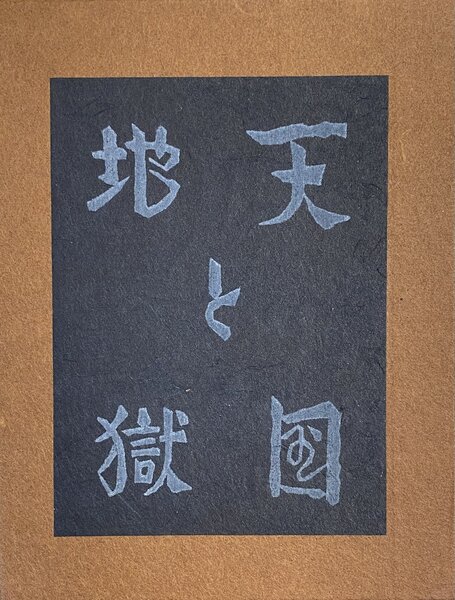 天国
と
地獄